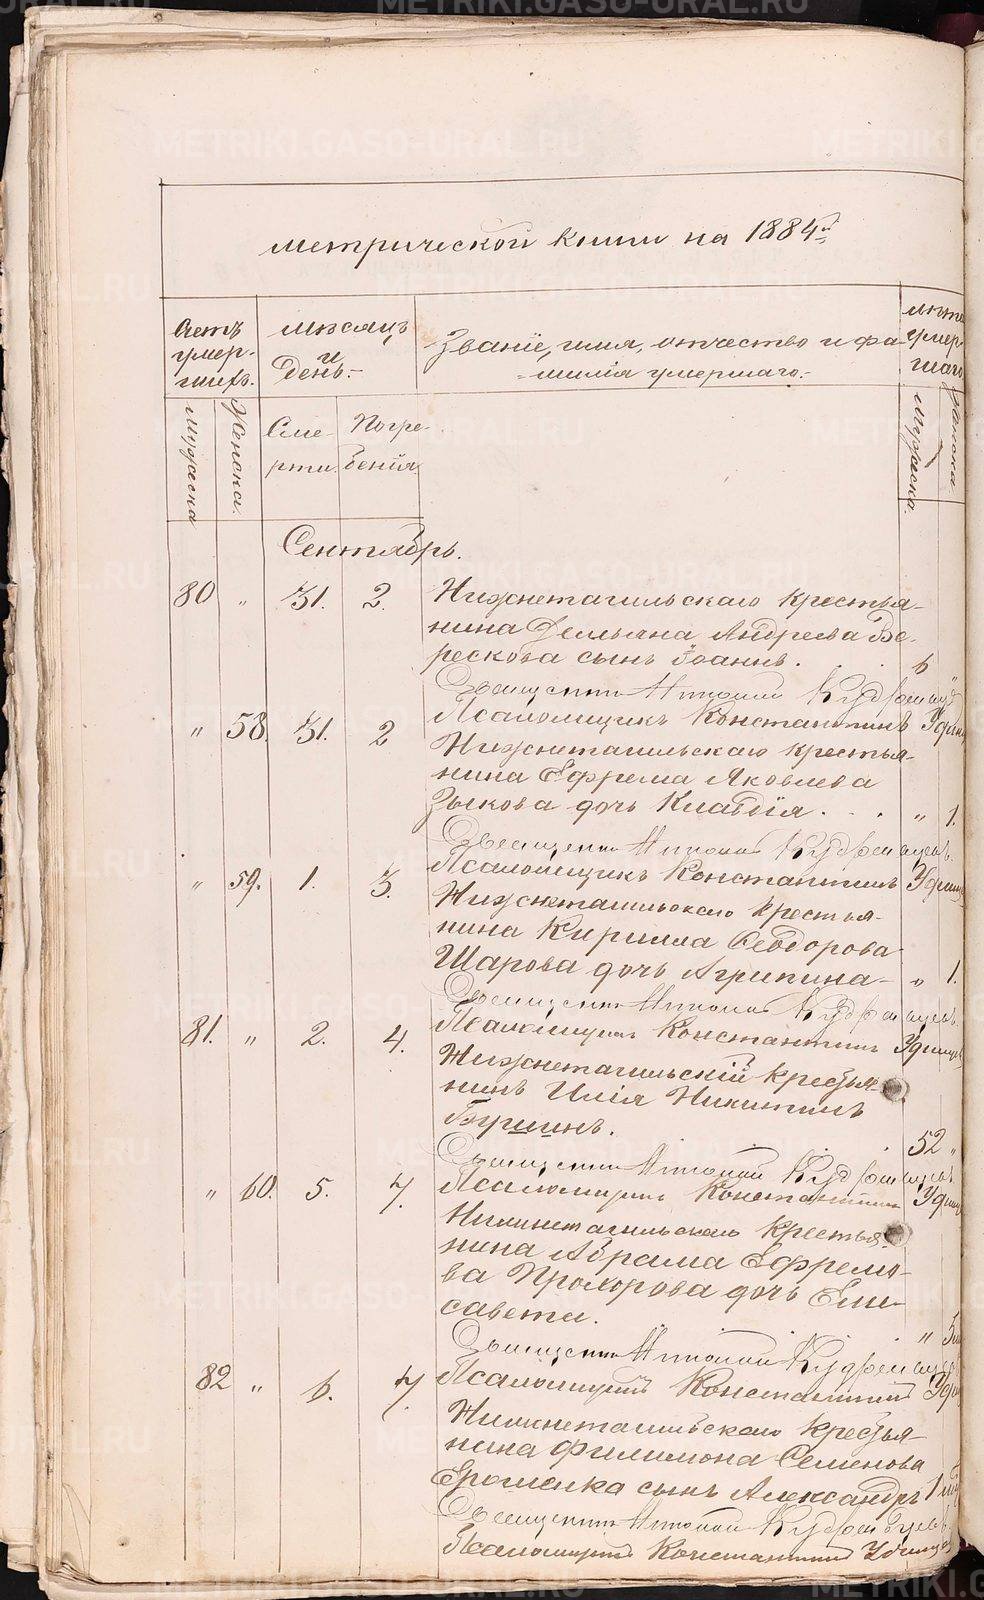 METRIKI.GASO-URAL.RU
метрической книги на 1884й
Счетъ умер-шихъ.
мѣсяцъ и день.
Званіе, имя, отчество и фа-
милія умершаго.
лѣта умер-шаго
Мужеска
Женска.
Сме-рти.
Погре-бенія.
Мужеска.
Женска
Сентябрь.
80 " 31. 2. Нижнетагильскаго крестья-
нина Демьяна Андреева Бе-
рескова сынъ Іоаннъ. 6 "
Священникъ Кудрявцевъ
Псаломщикъ Константинъ
" 58. 31. 2 Нижнетагильскаго крестья-
нина Ефрема Яковлева
Зыкова дочь Клавдія. " 1.
Священникъ Кудрявцевъ.
Псаломщикъ Константинъ
" 59. 1. 3. Нижнетагильскаго крестья-
нина Кирилла Ѳеодорова
Шарова дочь Агрипина " 1.
Священникъ Кудрявцевъ.
Псаломщикъ Константинъ
81. " 2. 4. Нижнетагильскій крестья-
нинъ Илія Никитинъ
Бушинъ. 52 "
Священникъ Кудрявцевъ
Псаломщикъ Константинъ
" 60. 5. 7. Нижнетагильскаго крестья-
нина Абрама Ефремо-
ва Прохорова дочь Ели-
савета. "
Священникъ Кудрявцевъ
Псаломщикъ Константинъ
82 " 6. 7. Нижнетагильскаго крестья-
нина Филимона Семенова
Ерошенка сынъ Александръ 1
Священникъ Кудрявцевъ.
Псаломщикъ Константинъ